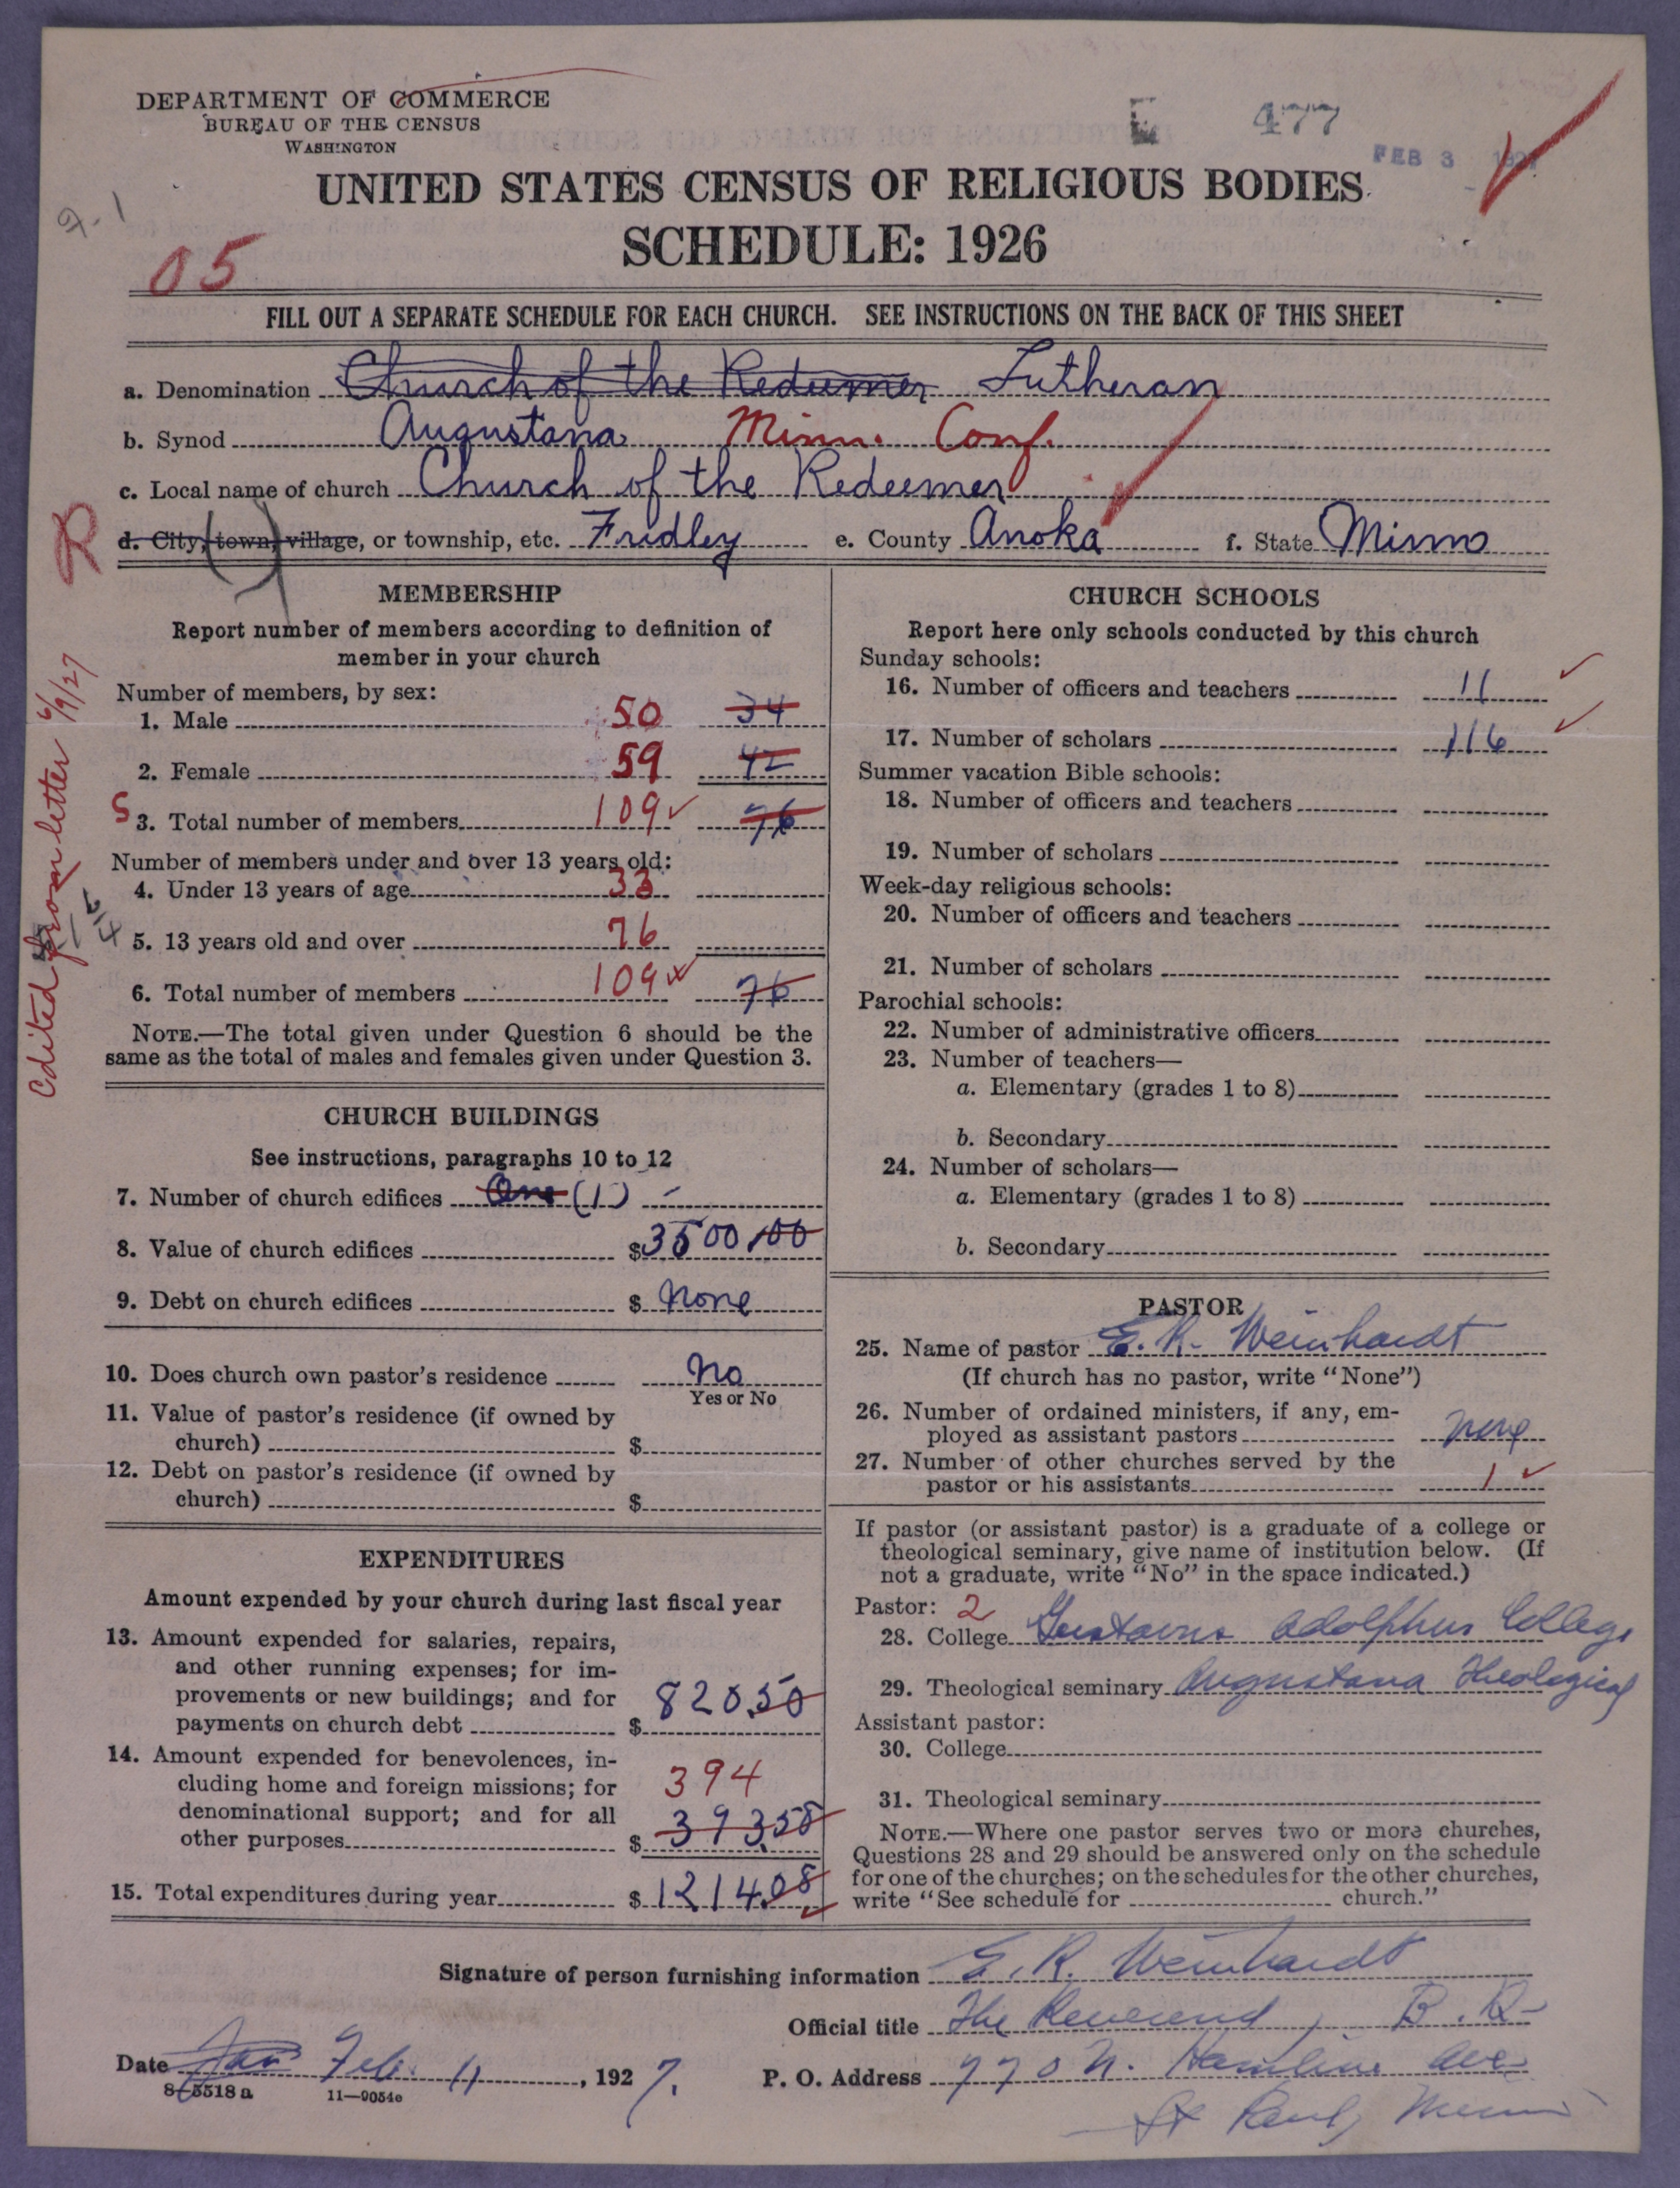 DEPARTMENT OF COMMERCE
BUREAU OF THE CENSUS
WASHINGTON
E 477
FEB 3 1927
UNITED STATES CENSUS OF RELIGIOUS BODIES
SCHEDULE: 1926
9-1
05
FILL OUT A SEPARATE SCHEDULE FOR EACH CHURCH. SEE INSTRUCTIONS ON THE BACK OF THIS SHEET
a. Denomination Church of the Redeemer Lutheran
b. Synod Augustana Minn. Conf.
c. Local name of church Church of the Redeemer
R
d. City, (town,) village, or township, etc. Fridley e. County Anoka f. State Minn
Edited from letter 6/9/27
MEMBERSHIP
Report number of members according to definition of
member in your church
Number of members, by sex:
1. Male 50 34
2. Female 59 42
S 3. Total number of members 109 76
Number of members under and over 13 years old:
4. Under 13 years of age 33
5. 13 years old and over 76
6. Total number of members 109 76
NOTE.—The total given under Question 6 should be the
same as the total of males and females given under Question 3.
CHURCH BUILDINGS
See instructions, paragraphs 10 to 12
7. Number of church edifices One (1)
8. Value of church edifices $3500.00
9. Debt on church edifices $ None
10. Does church own pastor's residence No
Yes or No
11. Value of pastor's residence (if owned by
church) $
12. Debt on pastor's residence (if owned by
church) $
EXPENDITURES
Amount expended by your church during last fiscal year
13. Amount expended for salaries, repairs,
and other running expenses; for im-
provements or new buildings; and for
payments on church debt $ 820.50
14. Amount expended for benevolences, in-
cluding home and foreign missions; for
denominational support; and for all
other purposes $ 394 393.58
15. Total expenditures during year $ 1214.08
CHURCH SCHOOLS
Report here only schools conducted by this church
Sunday schools:
16. Number of officers and teachers 11
17. Number of scholars 116
Summer vacation Bible schools:
18. Number of officers and teachers
19. Number of scholars
Week-day religious schools:
20. Number of officers and teachers
21. Number of scholars
Parochial schools:
22. Number of administrative officers
23. Number of teachers—
a. Elementary (grades 1 to 8)
b. Secondary
24. Number of scholars—
a. Elementary (grades 1 to 8)
b. Secondary
PASTOR
25. Name of pastor E. R. Weinhardt
(If church has no pastor, write "None")
26. Number of ordained ministers, if any, em-
ployed as assistant pastors None
27. Number of other churches served by the
pastor or his assistants 1
If pastor (or assistant pastor) is a graduate of a college or
theological seminary, give name of institution below. (If
not a graduate, write "No" in the space indicated.)
Pastor: 2
28. College Gustavus Adolphus College
29. Theological seminary Augustana Theological
Assistant pastor:
30. College
31. Theological seminary
NOTE.—Where one pastor serves two or more churches,
Questions 28 and 29 should be answered only on the schedule
for one of the churches; on the schedules for the other churches,
write "See schedule for church."
Signature of person furnishing information E. R. Weinhardt
Official title The Reverend, B. D.
Date Jan Feb. 11, 1927.
P. O. Address 770 N. Hamline Ave
St Paul, Minn
8-5518 a 11—9054e